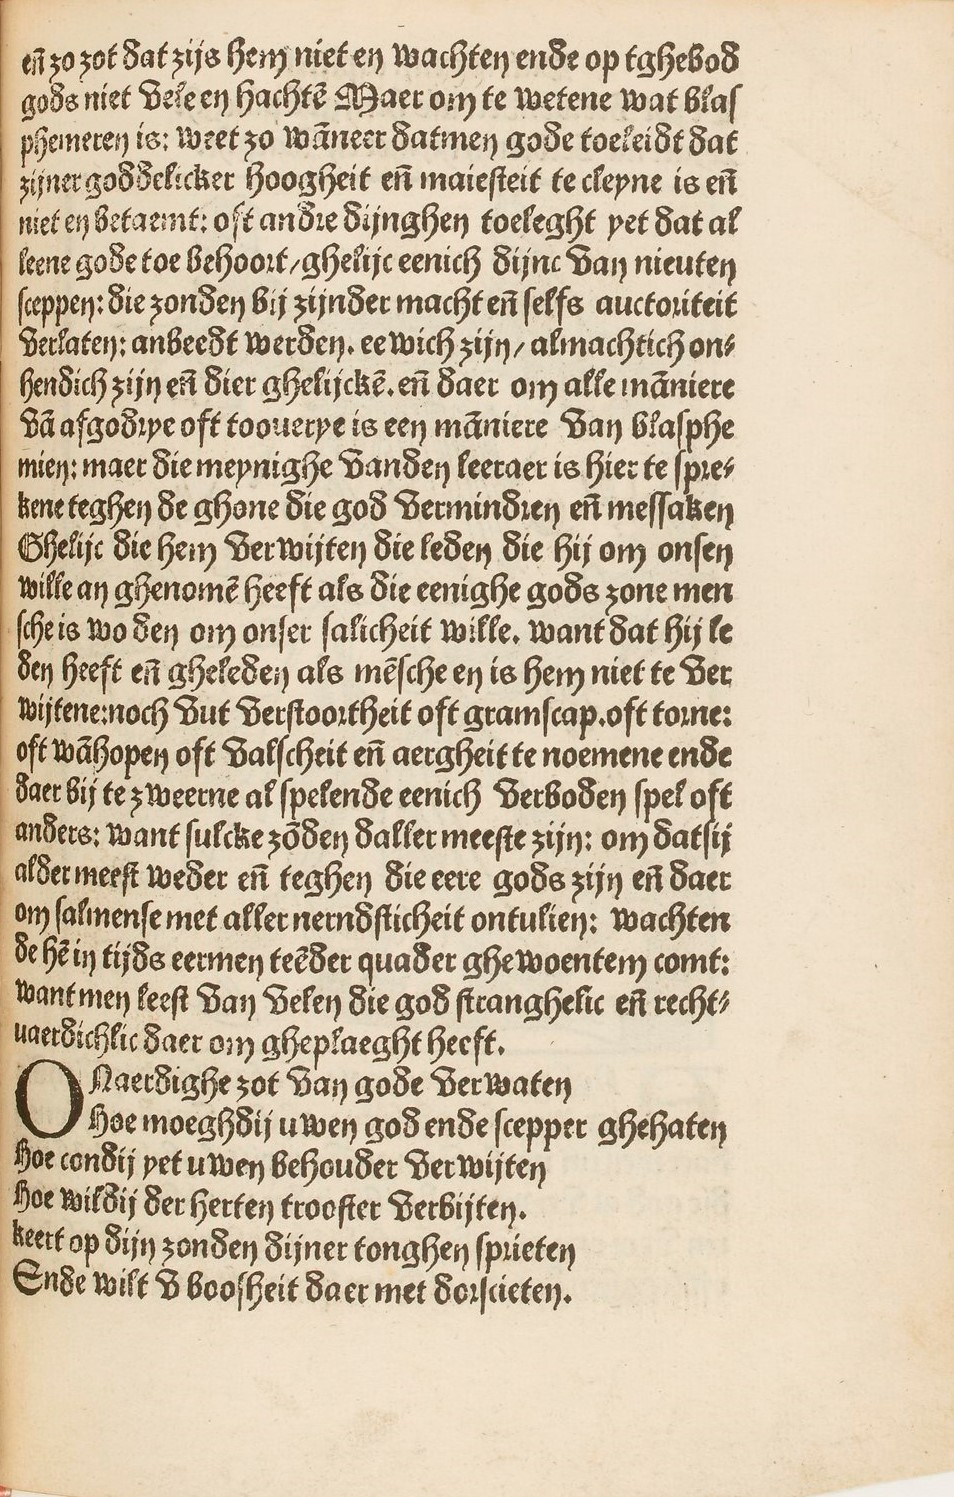 en̄ zo zot dat zijs hem niet en wachten ende op tghebod
gods niet vele en hachtē Maer om te wetene wat blas
phemeren is: weet zo wāneer datmen gode toeleidt dat
zijner goddelicker hoogheit en̄ maiesteit te cleyne is en̄
niet en betaemt: oft andre dijnghen toeleght yet dat al
leene gode toe behoort/ghelijc eenich dijnc van nieuten
sceppen: die zonden bij zijnder macht en̄ selfs auctoriteit
verlaten: anbeedt werden. eewich zijn/ almachtich on⸗
hendich zijn en̄ dier ghelijckē. en̄ daer om alle māniere
vā afgodrye oft toouerye is een māniere van blasphe
mien: maer die meynighe vanden leeraer is hier te spre⸗
kene teghen de ghone die god vermindren en̄ messaken
Ghelijc die hem verwijten die leden die hij om onsen
wille an ghenomē heeft als die eenighe gods zone men
sche is wo den om onser salicheit wille. want dat hij le
den heeft en̄ gheleden als mēsche en is hem niet te ver
wijtene: noch vut verstoortheit oft gramscap. oft torne:
oft wāhopen oft valscheit en̄ aergheit te noemene ende
daer bij te zweerne al spelende eenich verboden spel oft
anders: want sulcke zōden daller meeste zijn: om datsij
alder meest weder en̄ teghen die eere gods zijn en̄ daer
om salmense met aller nerndsticheit ontulien: wachten
de hē in tijds eermen teēder quader ghewoentem comt:
want men leest van velen die god stranghelic en̄ recht⸗
uaerdichlic daer om gheplaeght heeft.
ONaerdighe zot van gode verwaten
Hoe moeghdij uwen god ende scepper ghehaten
Hoe condij yet uwen behouder verwijten
Hoe wildij der herten trooster verbijten.
keert op dijn zonden dijner tonghen sprieten
Ende wilt v boosheit daer met dorscieten.